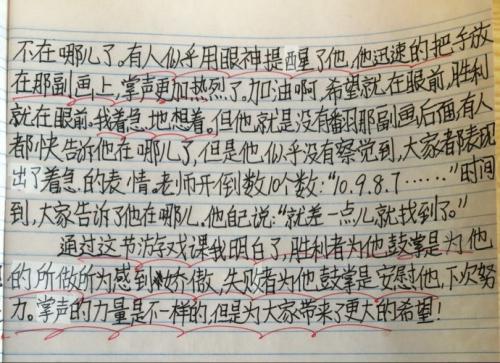 不在哪儿了。有人似乎用眼神提醒了他，他迅速的把手放
在那副画上，掌声更加热烈了。加油啊，希望就在眼前，胜利
就在眼前，我着急地想着。但他就是没有翻那副画后面，有人
都快告诉他在哪儿了，但是他似乎没有察觉到，大家都表现
出了着急的表情。老师开倒数10个数：“10.9.8.7……”时间
到，大家告诉了他在哪儿。他自己说：“就差一点儿就找到了。”
通过这节游戏课我明白了，胜利者为他鼓掌是为他
的所做所为感到骄傲，失败者为他鼓掌是安慰他，下次努
力。掌声的力量是不一样的，但是为大家带来了更大的希望！